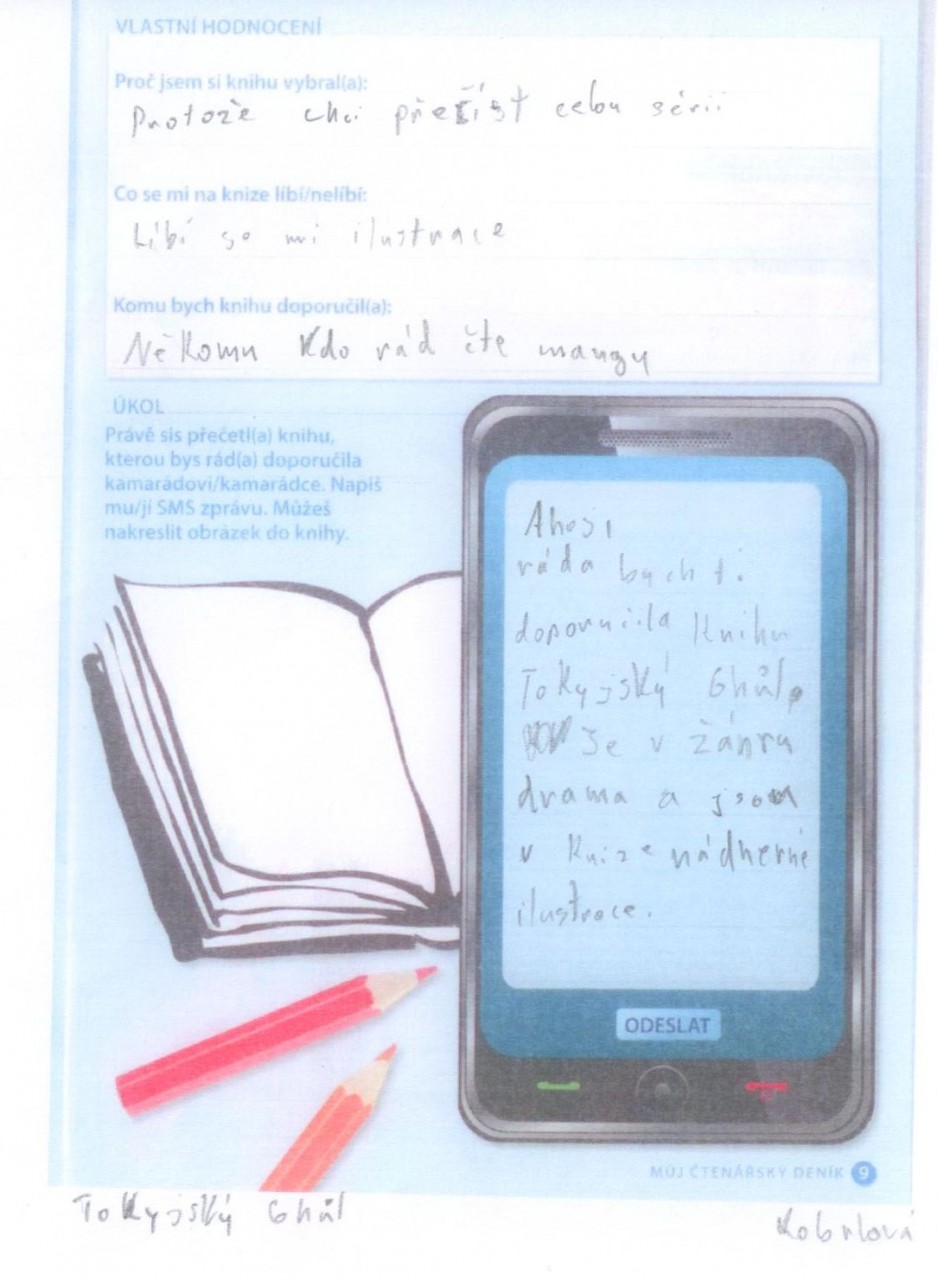 VLASTNÍ HODNOCENÍ
Proč jsem si knihu vybral(a):
Protože chci přečíst celou sérii
Co se mi na knize líbí/nelíbí:
Líbí se mi ilustrace
Komu bych knihu doporučil(a):
Někomu kdo rád čte mangy
ÚKOL
Právě sis přečetl(a) knihu,
kterou bys rád(a) doporučila
kamarádovi/kamarádce. Napiš
mu/jí SMS zprávu. Můžeš
nakreslit obrázek do knihy.
Ahoj,
ráda bych ti
doporučila knihu
Tokyjský Ghúl.
Je v žánru
drama a jsou
v knize nádherné
ilustrace.
ODESLAT
MŮJ ČTENÁŘSKÝ DENÍK 9
Tokyjský Ghůl